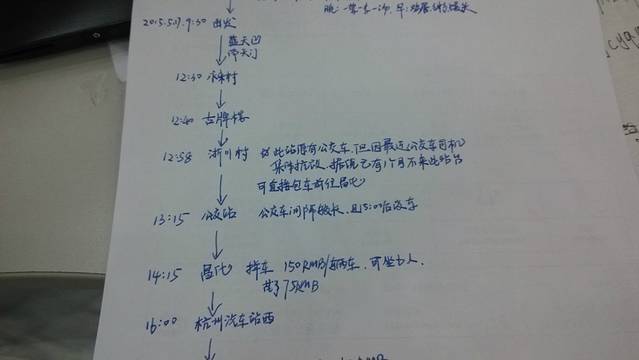 2015.5.17. 9:30 出发
蓝天凹
南天门
12:30 村
12:40 古牌楼
12:58 浙川村 好此站原有公交车,但因最近公交车司机
集体抗议,据说已有1个月不来此站台
可直接包车前往昌化
13:15 公交站 公交车间隔较长,且15:00后没车
14:15 昌化 拼车 150RMB/辆车,可坐6人
花了75RMB
16:00 杭州汽车站西